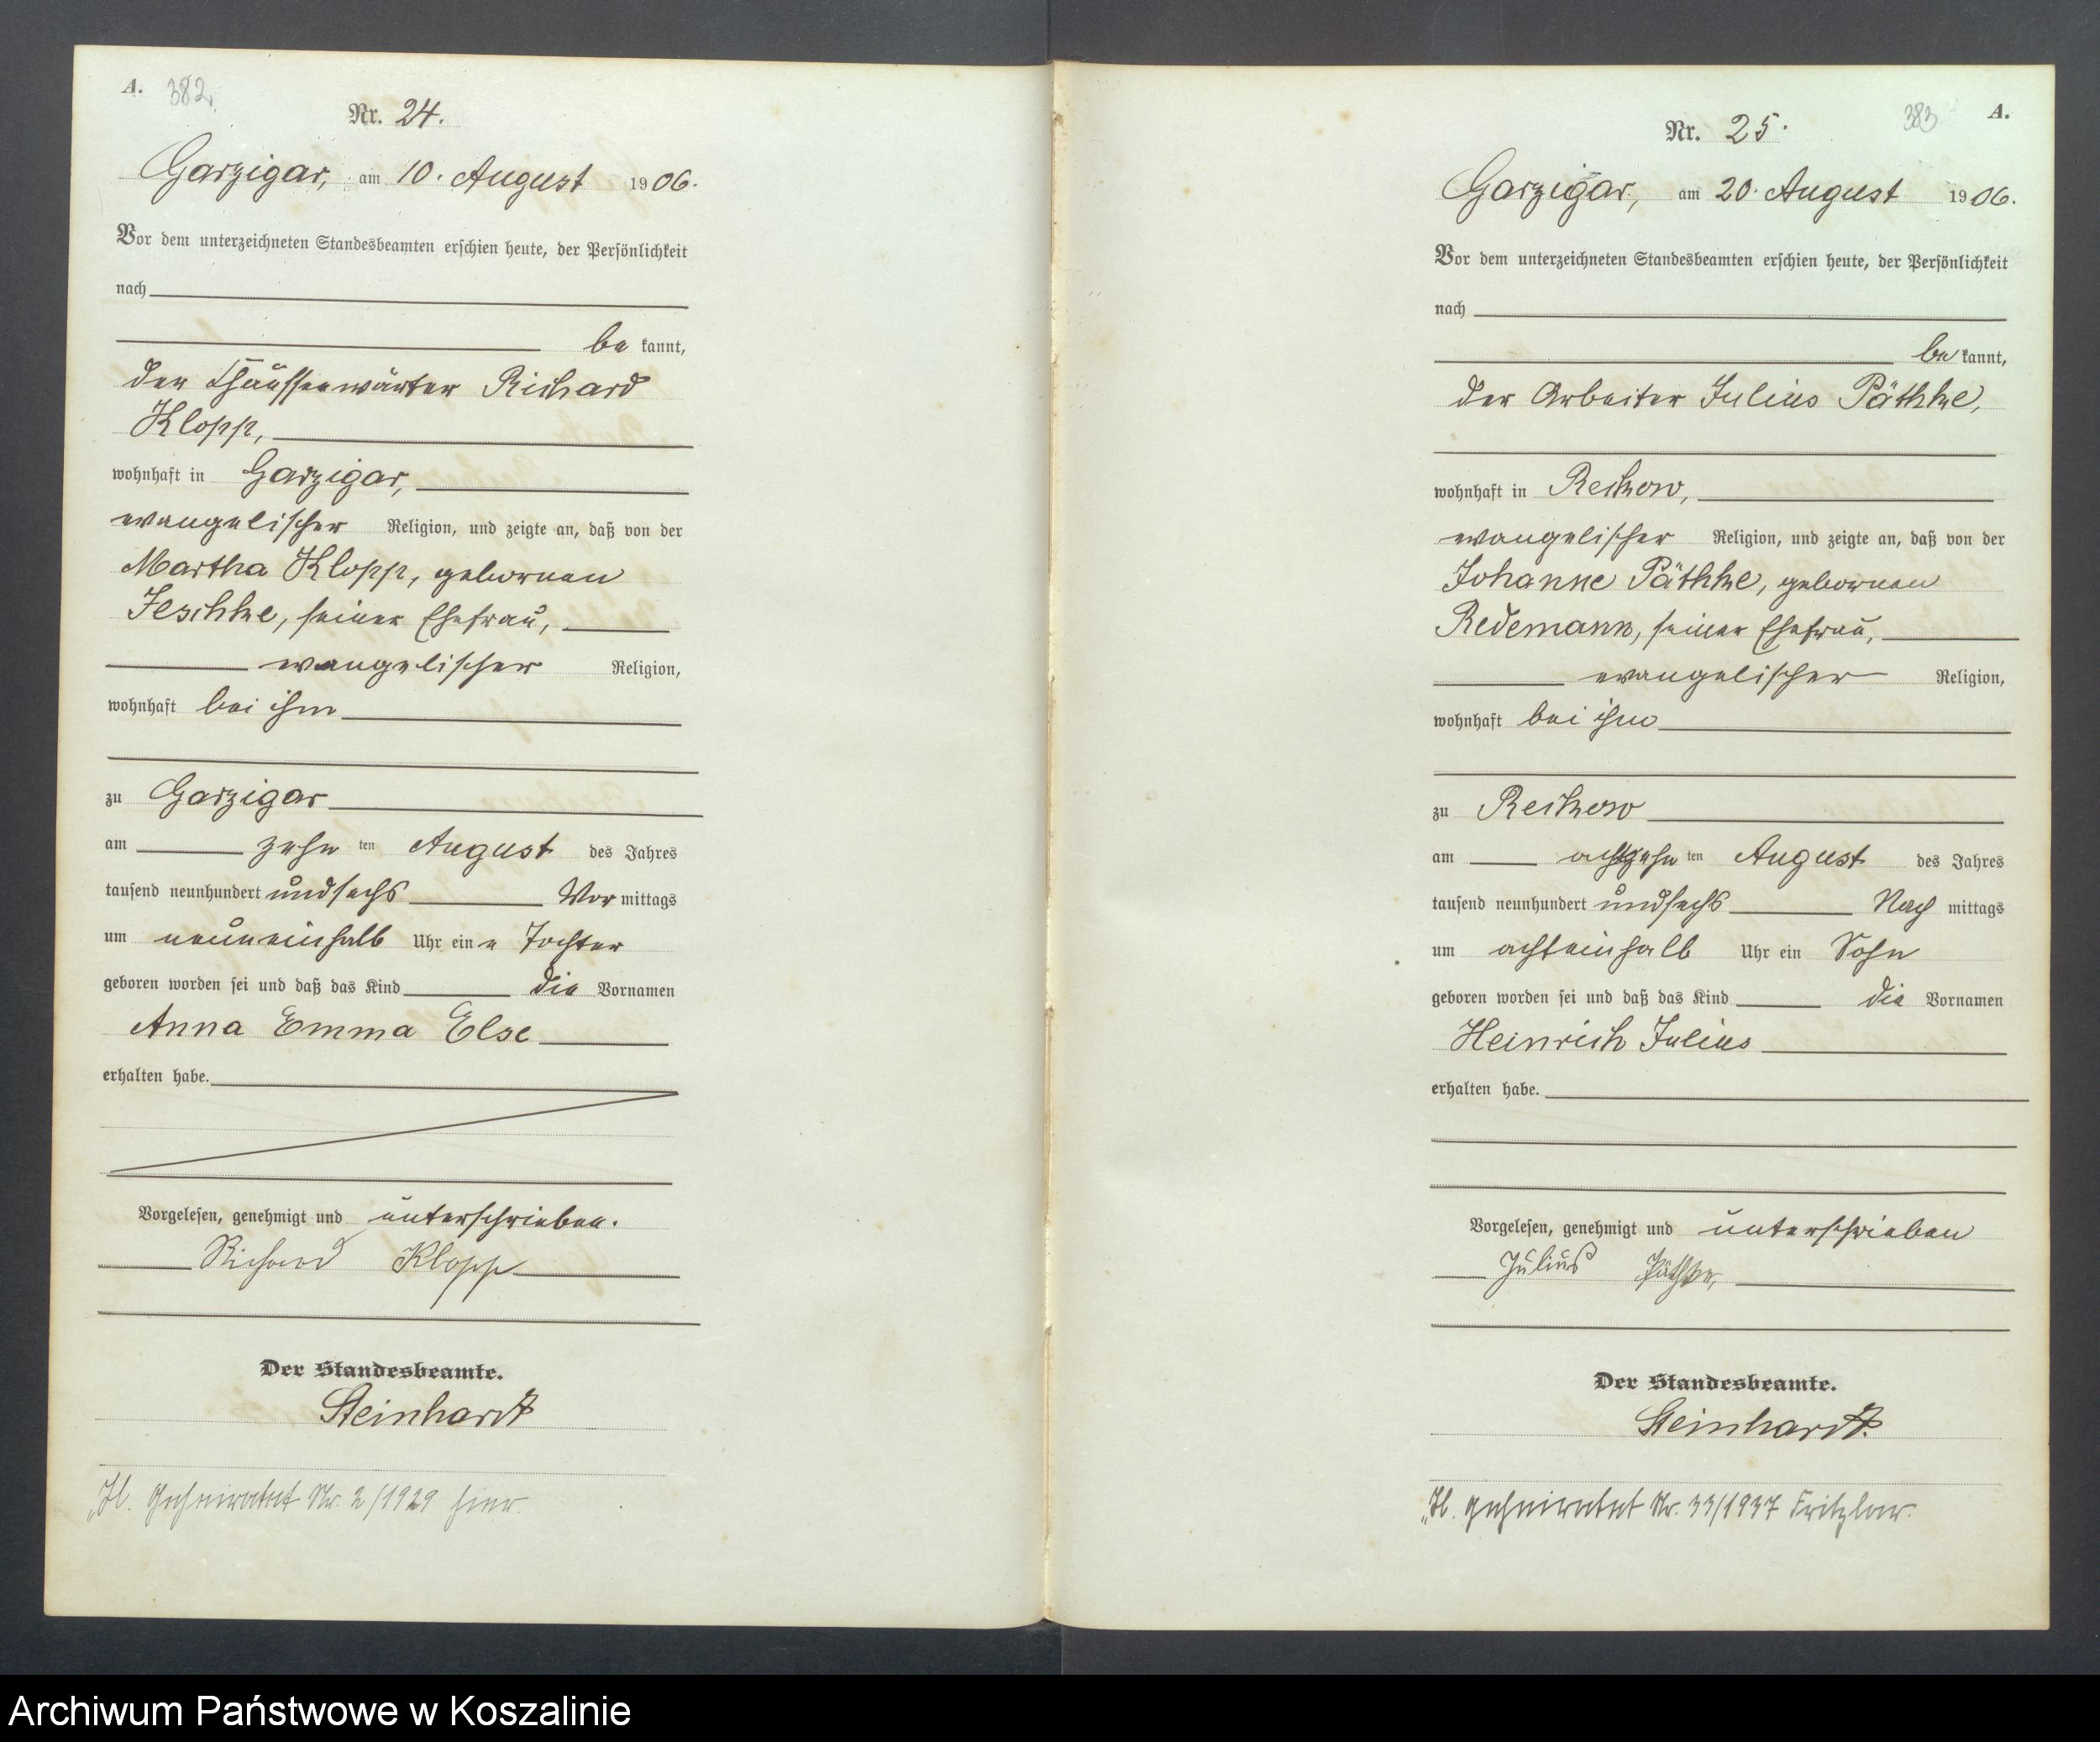 A. 382.
Nr. 24.
Garzigar, am 10. August 1906.
Vor dem unterzeichneten Standesbeamten erschien heute, der Persönlichkeit
nach
be kannt,
der Chausseewärter Richard
Klopp,
wohnhaft in Garzigar,
evangelischer Religion, und zeigte an, daß von der
Martha Klopp, gebornen
Jeschke, seiner Ehefrau,
evangelischer Religion,
wohnhaft bei ihm
zu Garzigar
am zehn ten August des Jahres
tausend neunhundert undsechs Vor mittags
um neuneinhalb Uhr ein e Tochter
geboren worden sei und daß das Kind die Vornamen
Anna Emma Else
erhalten habe.
Vorgelesen, genehmigt und unterschrieben.
Richard Klopp
Der Standesbeamte.
Steinhardt
Geheiratet Nr. 2/1929 hier.
383 A.
Nr. 25.
Garzigar, am 20. August 1906.
Vor dem unterzeichneten Standesbeamten erschien heute, der Persönlichkeit
nach
be kannt,
der Arbeiter Julius Päthke,
wohnhaft in Reckow,
evangelischer Religion, und zeigte an, daß von der
Johanne Päthke, gebornen
Redemann, seiner Ehefrau,
evangelischer Religion,
wohnhaft bei ihm
zu Reckow
am achtzehn ten August des Jahres
tausend neunhundert undsechs Nach mittags
um achteinhalb Uhr ein Sohn
geboren worden sei und daß das Kind die Vornamen
Heinrich Julius
erhalten habe.
Vorgelesen, genehmigt und unterschrieben
Julius Päthke,
Der Standesbeamte.
Steinhardt.
geheiratet Nr. 33/1937 Fritzlar.
Archiwum Państwowe w Koszalinie